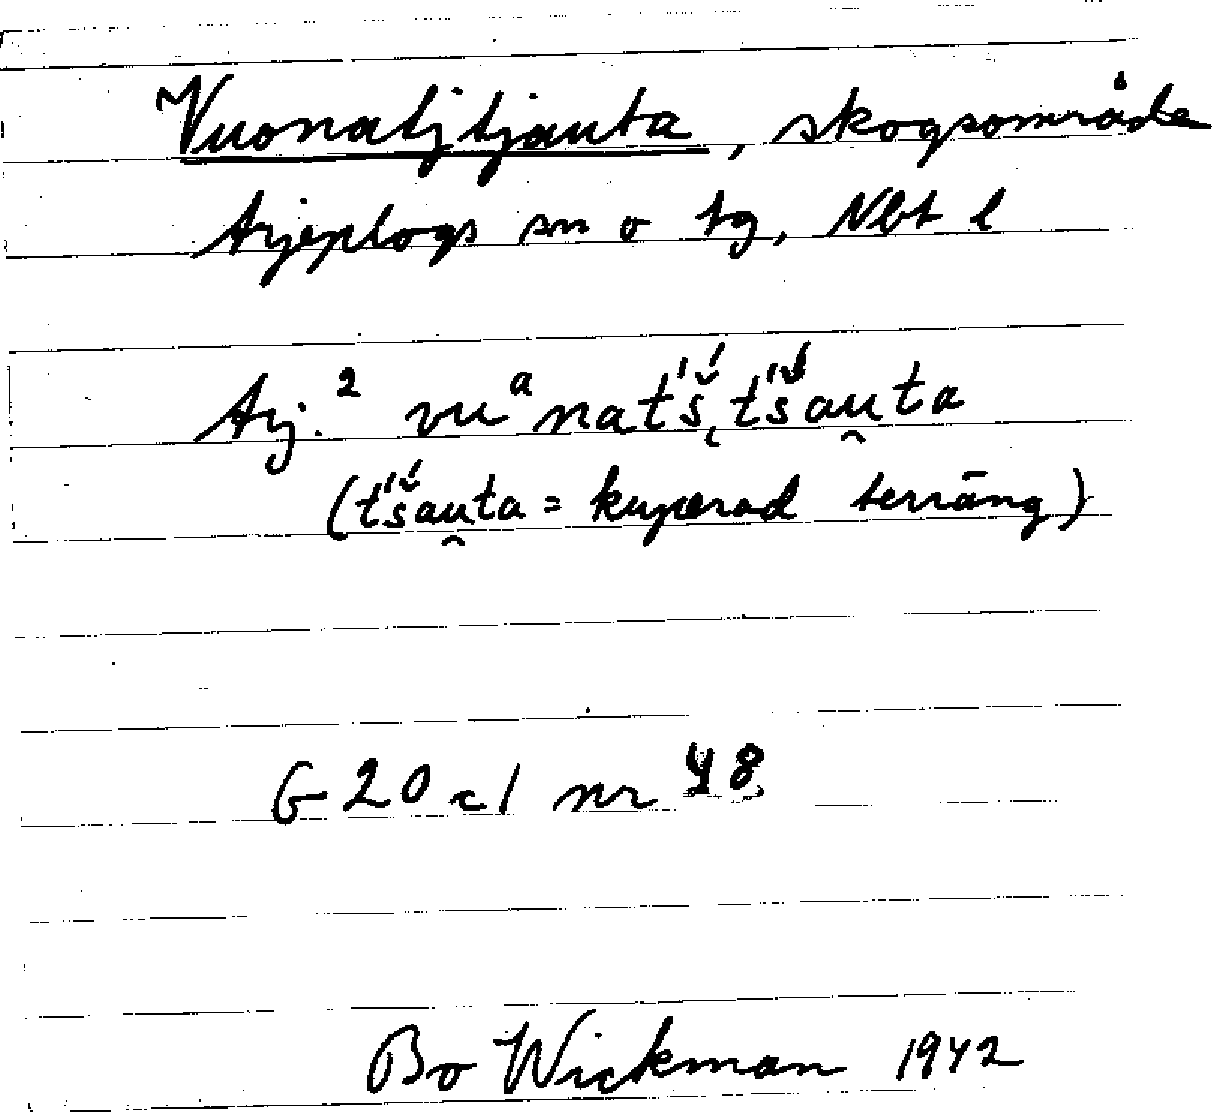 Vuonatjtjauta, skogsområde
Arjeplogs sn o tg, Nbt l
Arj.² vuᵃnat'š́, t'š́au̯ta
(t'š́au̯ta = kuperad terräng)
G 20 c/ nr 48
Bo Wickman 1942